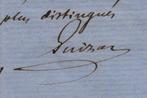 plus distingués
Guizot